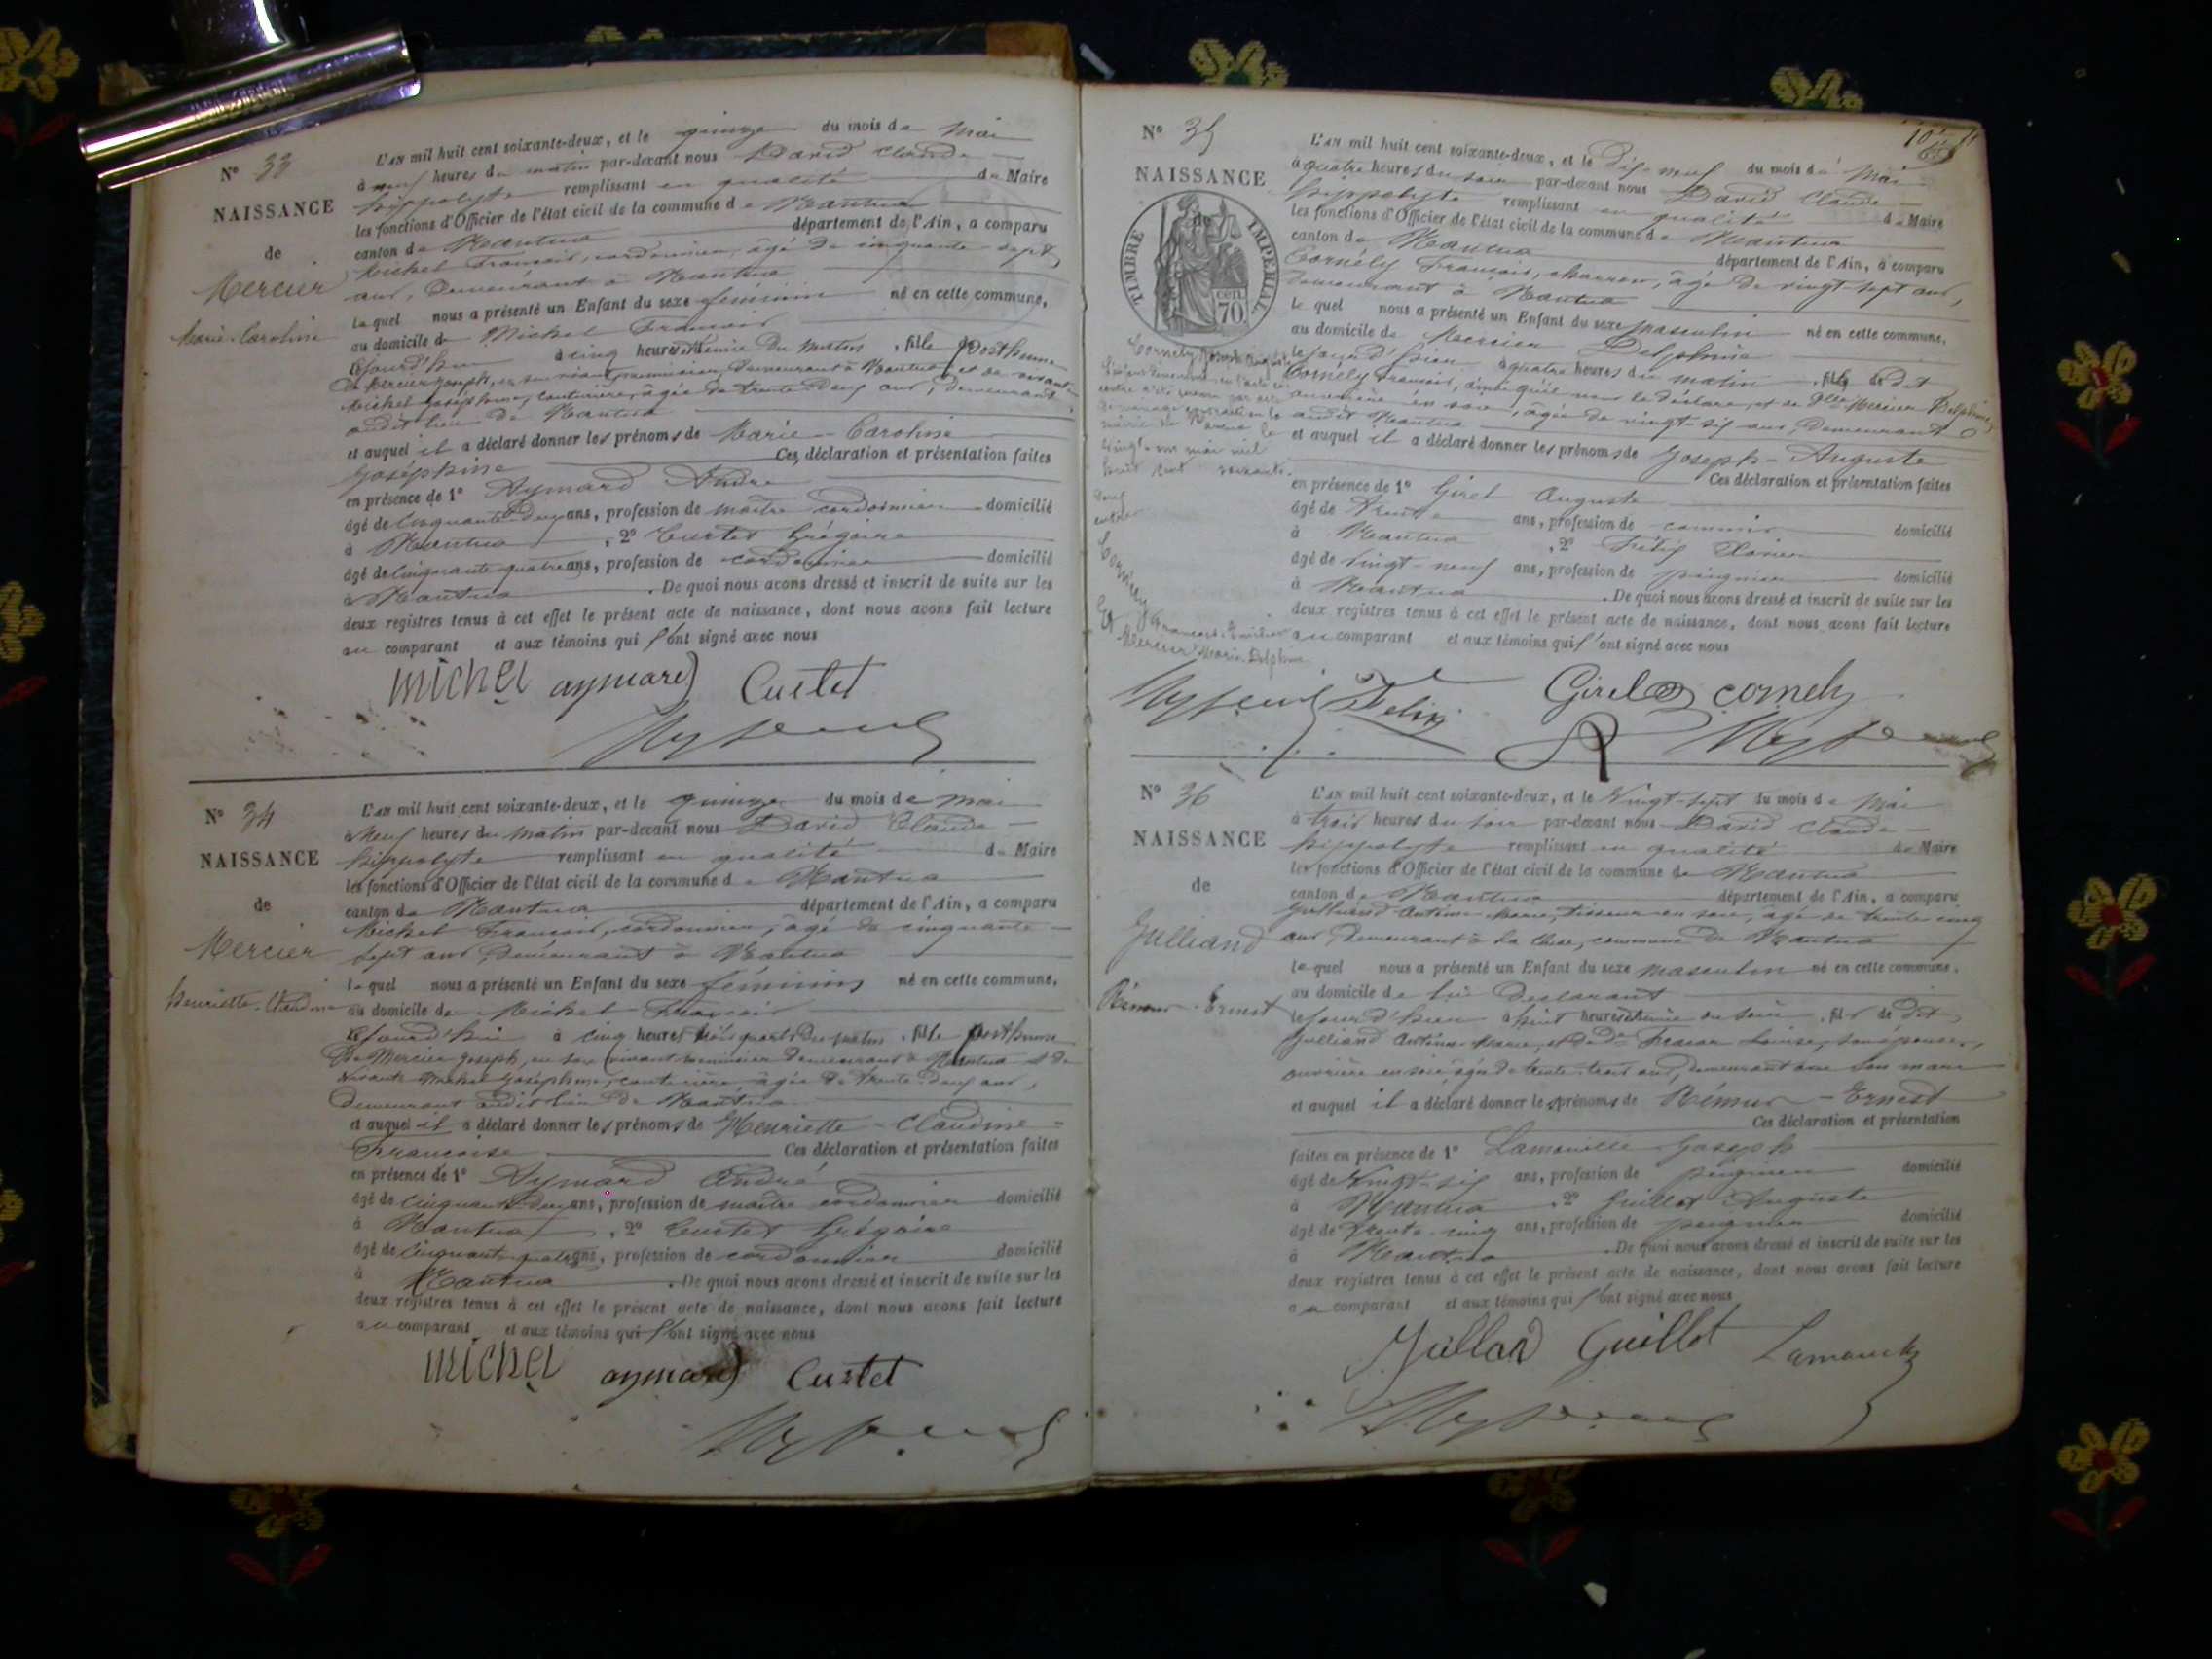 N° 33
NAISSANCE
de
Mercier
Marie-Caroline
L'AN mil huit cent soixante-deux, et le quinze du mois de Mai
à neuf heures du matin par-devant nous David Claude
hippolyte remplissant en qualité de Maire
les fonctions d'Officier de l'état civil de la commune de Nantua
canton de Nantua département de l'Ain, a comparu
Michel François, cordonnier, âgé de cinquante sept
ans, demeurant à Nantua
lequel nous a présenté un Enfant du sexe féminin né en cette commune,
au domicile de Michel François
cejourd'hui à cinq heures et demie du matin, fille posthume
de Mercier Joseph, en son vivant menuisier, demeurant à Nantua et de vivante
Michel Joséphine, couturière, âgée de trente deux ans, demeurant
audit lieu de Nantua
et auquel il a déclaré donner les prénoms de Marie-Caroline
Joséphine Ces déclaration et présentation faites
en présence de 1° Aymard André
âgé de cinquante-deux ans, profession de maître cordonnier domicilié
à Nantua, 2° Curtet Grégoire
âgé de cinquante-quatre ans, profession de cordonnier domicilié
à Nantua. De quoi nous avons dressé et inscrit de suite sur les
deux registres tenus à cet effet le présent acte de naissance, dont nous avons fait lecture
au comparant et aux témoins qui l'ont signé avec nous
michel aymard Curtet
N° 34
NAISSANCE
de
Mercier
henriette-Claudine
L'AN mil huit cent soixante-deux, et le quinze du mois de Mai
à neuf heures du matin par-devant nous David Claude
hippolyte remplissant en qualité de Maire
les fonctions d'Officier de l'état civil de la commune de Nantua
canton de Nantua département de l'Ain, a comparu
Michel François, cordonnier, âgé de cinquante
sept ans, demeurant à Nantua
lequel nous a présenté un Enfant du sexe féminin né en cette commune,
au domicile de Michel François
cejourd'hui à cinq heures trois quarts du matin, fille posthume
de Mercier Joseph, en son vivant menuisier demeurant à Nantua et de
vivante Michel Joséphine, couturière, âgée de trente-deux ans,
demeurant audit lieu de Nantua
et auquel il a déclaré donner les prénoms de Henriette-Claudine
Françoise Ces déclaration et présentation faites
en présence de 1° Aymard André
âgé de cinquante-deux ans, profession de maître cordonnier domicilié
à Nantua, 2° Curtet Grégoire
âgé de cinquante-quatre ans, profession de cordonnier domicilié
à Nantua. De quoi nous avons dressé et inscrit de suite sur les
deux registres tenus à cet effet le présent acte de naissance, dont nous avons fait lecture
au comparant et aux témoins qui l'ont signé avec nous
michel aymard Curtet
N° 35
NAISSANCE
de
TIMBRE IMPERIAL
70 cen.
Cornély Joseph-Auguste
mairie de Nantua le
vingt-un mai mil
huit cent soixante-
neuf
Cornély François
Et
Mercier Marie Delphine
L'AN mil huit cent soixante-deux, et le dix-neuf du mois de Mai
à quatre heures du soir par-devant nous David Claude
hippolyte remplissant en qualité de Maire
les fonctions d'Officier de l'état civil de la commune de Nantua
canton de Nantua département de l'Ain, a comparu
Cornély François, charron, âgé de vingt-sept ans,
demeurant à Nantua
lequel nous a présenté un Enfant du sexe masculin né en cette commune,
au domicile de Mercier Delphine
cejourd'hui à quatre heures du matin, fils de dit
Cornély François, ainsi qu'il nous le déclare, et de Dlle Mercier Delphine,
ouvrière en soie, âgée de vingt-six ans, demeurant
audit Nantua
et auquel il a déclaré donner les prénoms de Joseph-Auguste
Ces déclaration et présentation faites
en présence de 1° Girel Auguste
âgé de trente ans, profession de commis domicilié
à Nantua, 2° Félix Xavier
âgé de vingt-neuf ans, profession de peignier domicilié
à Nantua. De quoi nous avons dressé et inscrit de suite sur les
deux registres tenus à cet effet le présent acte de naissance, dont nous avons fait lecture
au comparant et aux témoins qui l'ont signé avec nous
Felix Girel cornely
N° 36
NAISSANCE
de
Julliand
Rémus-Ernest
L'AN mil huit cent soixante-deux, et le vingt-sept du mois de Mai
à trois heures du soir par-devant nous David Claude
hippolyte remplissant en qualité de Maire
les fonctions d'Officier de l'état civil de la commune de Nantua
canton de Nantua département de l'Ain, a comparu
Julliand Antime-Marie, tisseur en soie, âgé de trente cinq
ans, demeurant à la Cluse, commune de Nantua
lequel nous a présenté un Enfant du sexe masculin né en cette commune,
au domicile de lui déclarant
cejourd'hui à huit heures et demie du soir, fils de dit
Julliand Antime-Marie, et de Louise, son épouse,
ouvrière en soie, âgée de trente-trois ans, demeurant avec son mari
et auquel il a déclaré donner les prénoms de Rémus-Ernest
Ces déclaration et présentation
faites en présence de 1° Lamouille Joseph
âgé de vingt-six ans, profession de peignier domicilié
à Nantua, 2° Guillot Auguste
âgé de trente-cinq ans, profession de peignier domicilié
à Nantua. De quoi nous avons dressé et inscrit de suite sur les
deux registres tenus à cet effet le présent acte de naissance, dont nous avons fait lecture
au comparant et aux témoins qui l'ont signé avec nous
Julland Guillot